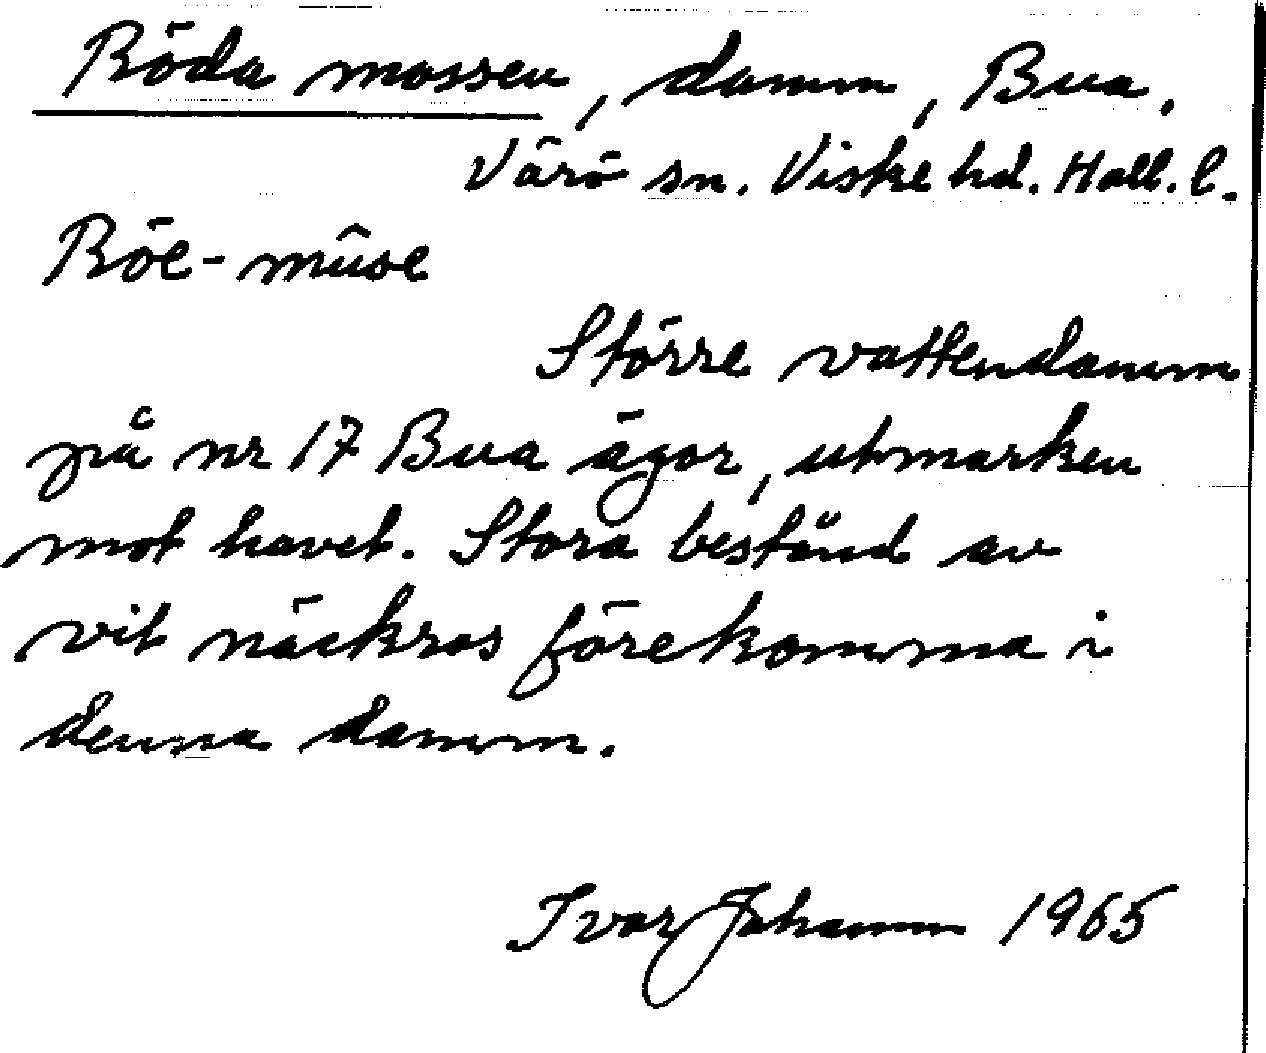 Röda mossen, damm, Bua.
Värö sn. Viske hd. Hall. l.
Röe-mûse
Större vattendamm
på nr 17 Bua ägor, utmarken
mot havet. Stora bestånd av
vit näckros förekomma i
denna damm.
Ivar Johansson 1965